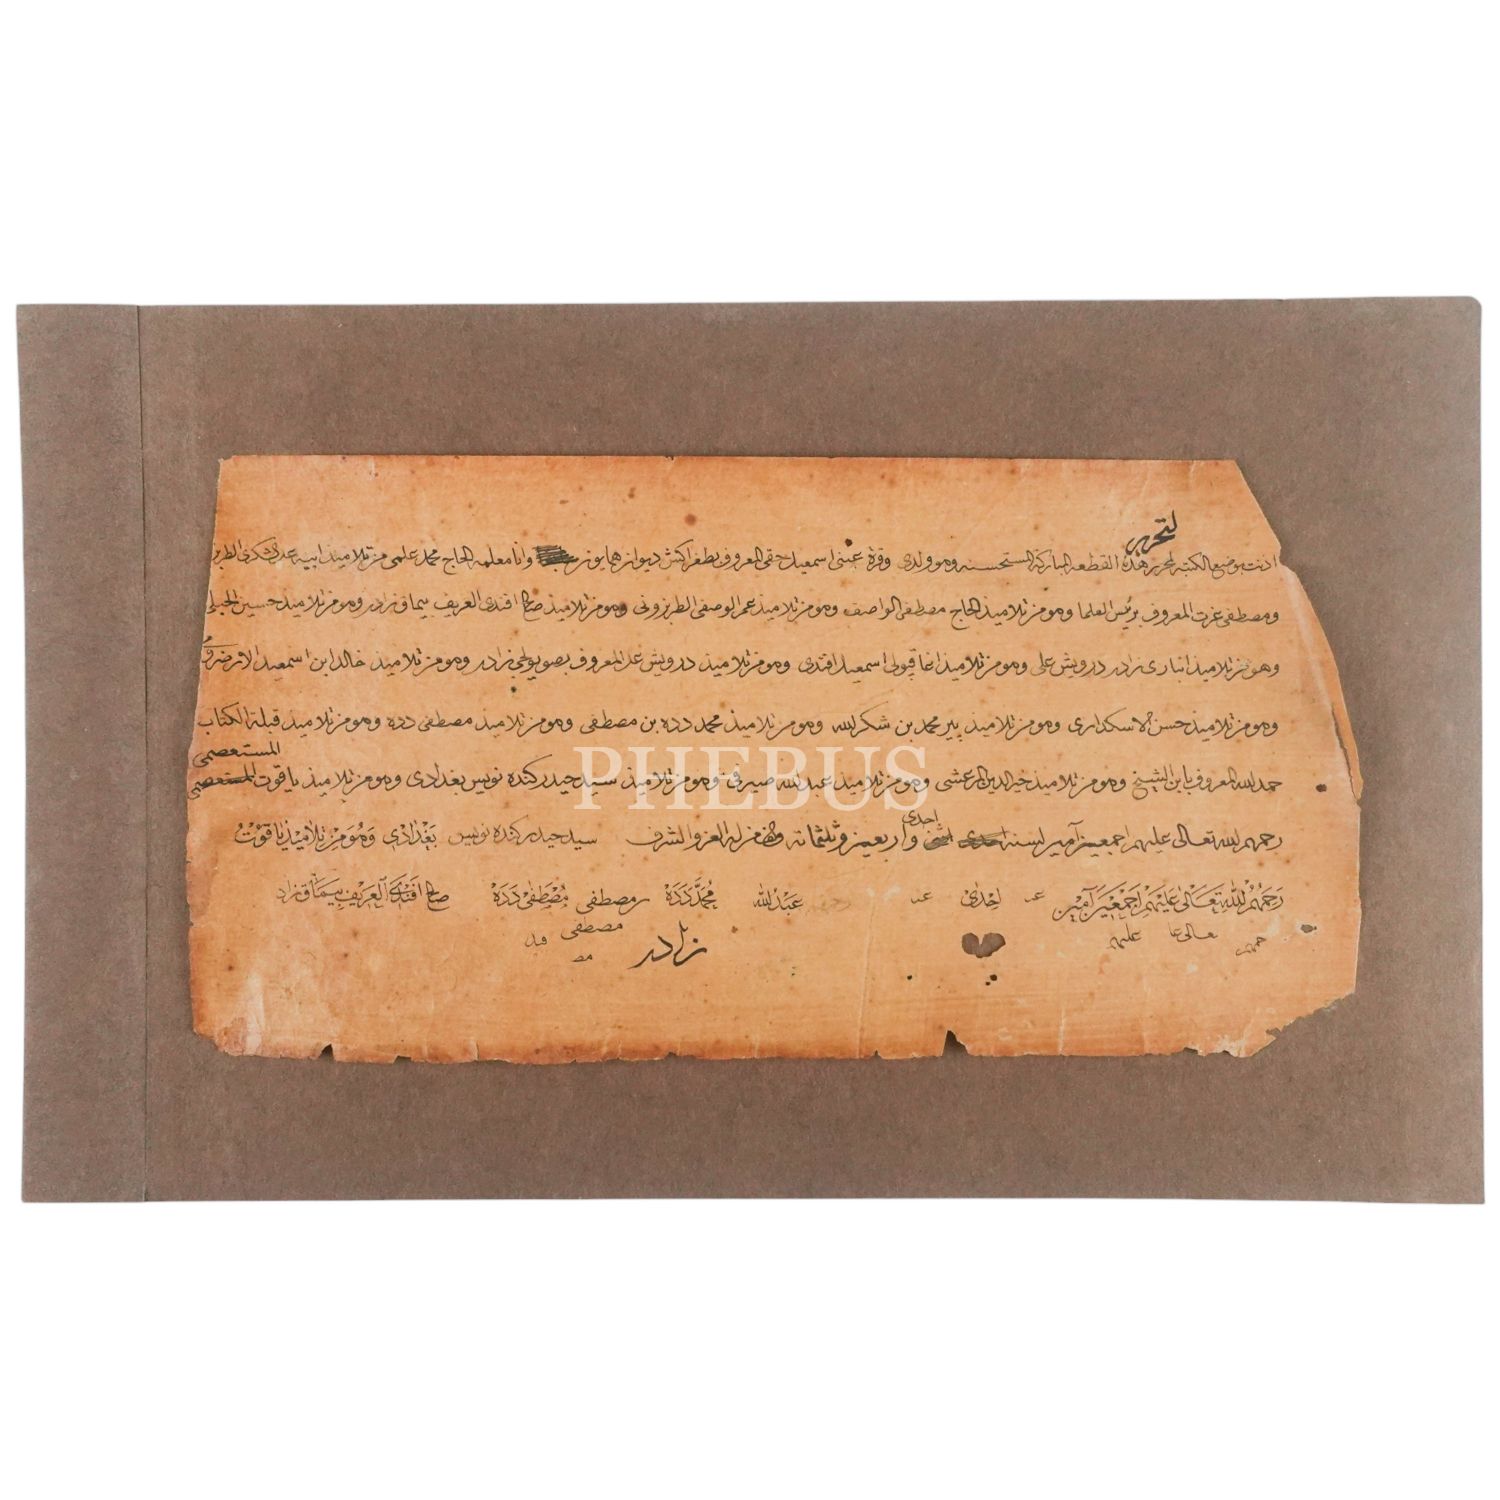 لتحرير
اذنت بوضع الكتبة لمحرر هذه القطعه المباركة المستحسنه وهو ولدى وقرة عينى اسمعيل حقى المعروف بطغراكش ديوان همايون وانا معلمه الحاج محمد علمى من تلاميذ ابيه
ومصطفى عزت المعروف برئيس العلما وهو من تلاميذ الحاج مصطفى الواصف وهو من تلاميذ عمر الوصفى الطربزونى وهو من تلاميذ صالح افندى العريف بيماق زاده وهو من تلاميذ حسين الحبلى
وهو من تلاميذ انبارى زاده درويش على وهو من تلاميذ اغا قپولى اسمعيل افندى وهو من تلاميذ درويش على المعروف بصويولجى زاده وهو من تلاميذ خالد ابن اسمعيل الارضرومى
وهو من تلاميذ حسن الاسكدارى وهو من تلاميذ پير محمد بن شكر الله وهو من تلاميذ محمد دده بن مصطفى وهو من تلاميذ مصطفى دده وهو من تلاميذ قبلة الكتاب
المستعصمى
حمد الله المعروف بابن الشيخ وهو من تلاميذ خير الدين المرعشى وهو من تلاميذ عبد الله صيرفى وهو من تلاميذ سيد حيدر كنده نويس بغدادى وهو من تلاميذ ياقوت المستعصمى
احدى
رحمهم الله تعالى عليهم اجمعين آمين لسنه احدى واربعين وثلثمائة من له العز والشرف سيد حيدر كنده نويس بغدادى وهو من تلاميذ ياقوت
رحمهم الله تعالى عليهم اجمعين آمين عد احدى عد عبد الله محمد دده مصطفى مصطفى دده صالح افندى العريف بيماق زاد
حمهم تعالى عا عليهم زاده مصطفى مص
PHEBUS